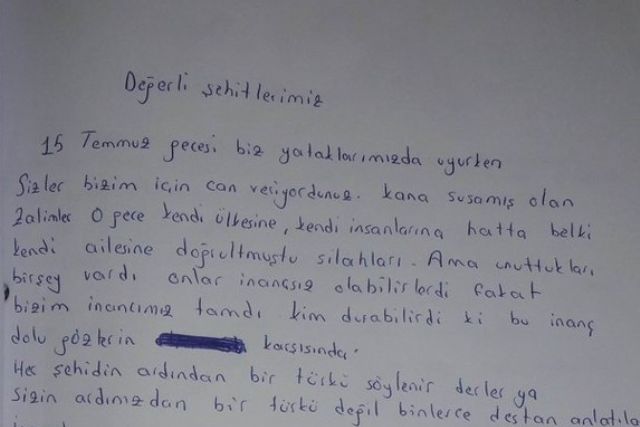 Değerli şehitlerimiz
15 Temmuz gecesi biz yataklarımızda uyurken
Sizler bizim için can veriyordunuz. Kana susamış olan
Zalimler O gece kendi ülkesine, kendi insanlarına hatta belki
kendi ailesine doğrultmuştu silahları. Ama unuttukları
birşey vardı onlar inançsız olabilirlerdi fakat
bizim inancımız tamdı kim durabilirdi ki bu inanç
dolu gözlerin karşısında.
Her şehidin ardından bir türkü söylenir derler ya
Sizin ardınızdan bir türkü değil binlerce destan anlatıla